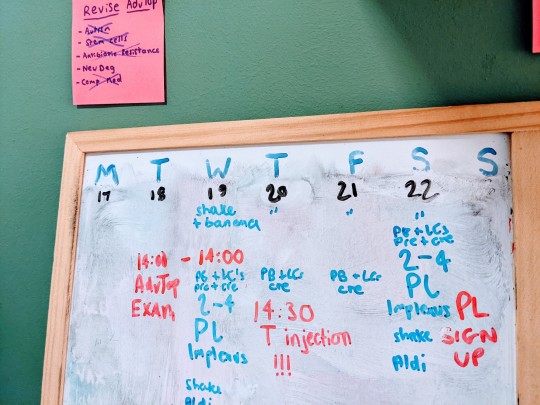 Revise AdvTop
- Autism
- Stem cells
- Antibiotic Resistance
- NeuDeg
- Comp Med
M T W T F S S
17 18 19 20 21 22
shake
+ banana
" " "
14:00
AdvTop
Exam
- 14:00
PB + LC's
pre + cre
2-4
PL
Implaus
shake
Aldi
PB + LCs
cre
14:30
T injection
!!!
PB + LCs
cre
PB + LCs
pre + cre
2-4
PL
shake
Aldi
PL
SIGN
UP